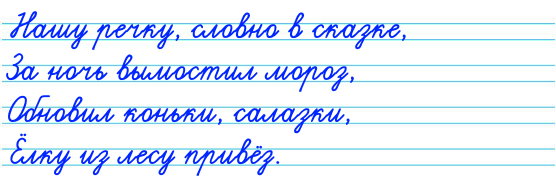 Нашу речку, словно в сказке,
За ночь вымостил мороз,
Обновил коньки, салазки,
Ёлку из лесу привёз.